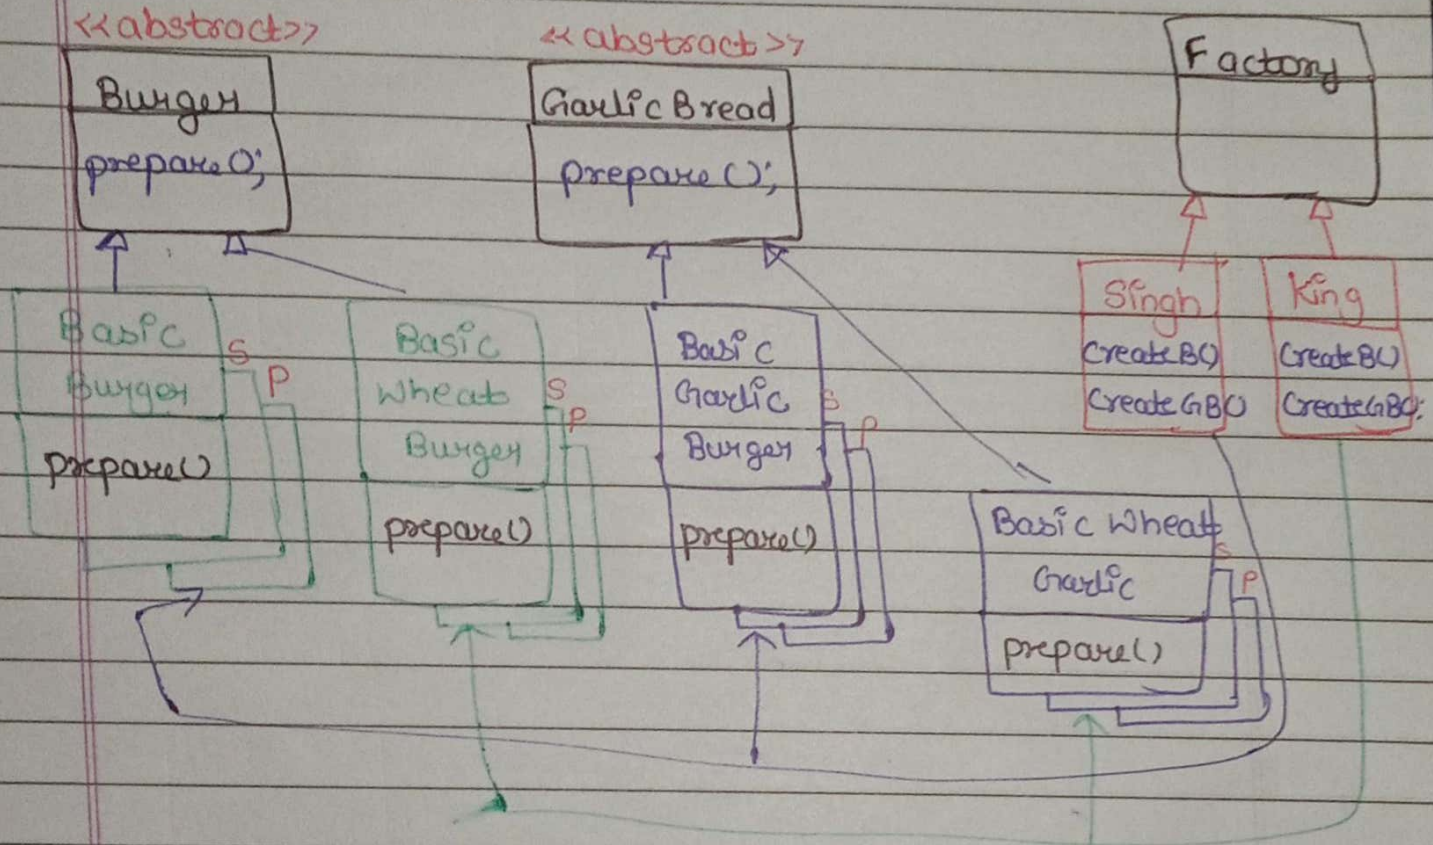 <<abstract>>
Burger
prepare();
<<abstract>>
GarlicBread
prepare();
Factory
Singh
CreateB()
CreateGB()
King
CreateB()
CreateGB();
Basic
Burger
S
P
prepare()
Basic
Wheat
Burger
S
P
prepare()
Basic
Garlic
Burger
S
P
prepare()
Basic Wheat
Garlic
S
P
prepare()